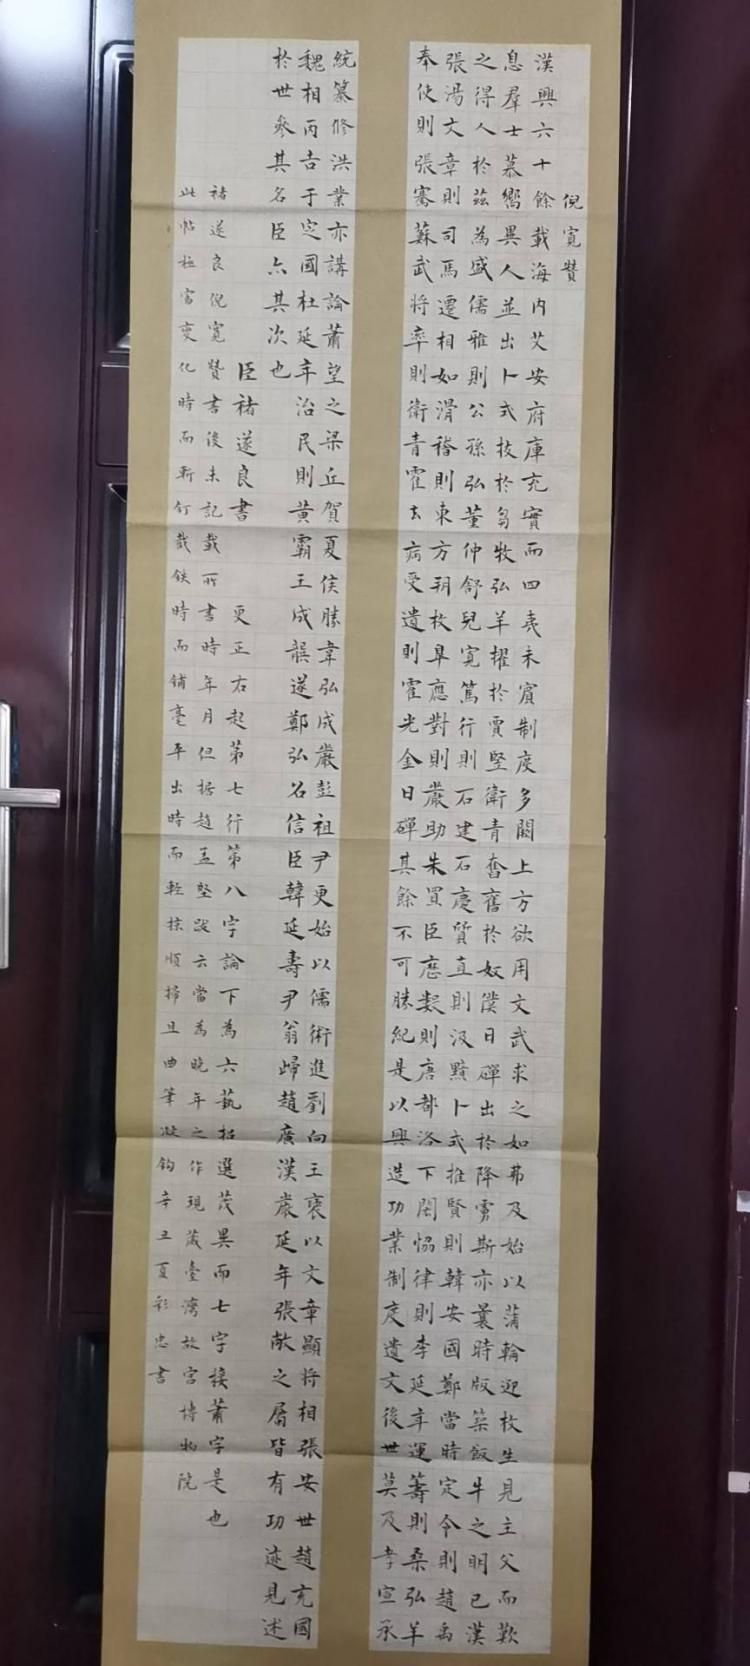 倪寬贊
漢興六十餘載海内艾安府庫充實而四夷未賓制度多闕上方欲用文武求之如弗及始以蒲輪迎枚生見主父而歎
息羣士慕嚮異人並出卜式拔於芻牧弘羊擢於賈堅衛青奮舊於奴僕日磾出於降虜斯亦曩時版築飯牛之明已漢
之得人於茲為盛儒雅則公孫弘董仲舒兒寬篤行則石建石慶質直則汲黯卜式推賢則韓安國鄭當時定令則趙禹
張湯文章則司馬遷相如滑稽則東方朔枚皐應對則嚴助朱買臣應數則唐都洛下閎協律則李延年運籌則桑弘羊
奉使則張騫蘇武将率則衛青霍去病受遺則霍光金日磾其餘不可勝紀是以興造功業制度遺文後世莫及孝宣承
統纂修洪業亦講論蕭望之梁丘賀夏侯勝韋弘成嚴彭祖尹更始以儒術進劉向王褒以文章顯將相張安世趙充國
魏相丙吉于定國杜延年治民則黄霸王成龔遂鄭弘名信臣韓延壽尹翁歸趙廣漢嚴延年張敞之屬皆有功迹見述
於世參其名臣亦其次也
臣褚遂良書
更正右起第七行第八字論下為六藝招選茂異而七字接蕭字是也
褚遂良倪寬贊書後未記載所書時年月但据趙孟堅跋云當為晚年之作現藏臺灣故宮博物院
此帖極富變化時而斬釘截鐵時而鋪毫平出時而輕掠順掃且曲筆凝鈎辛丑夏彩忠書